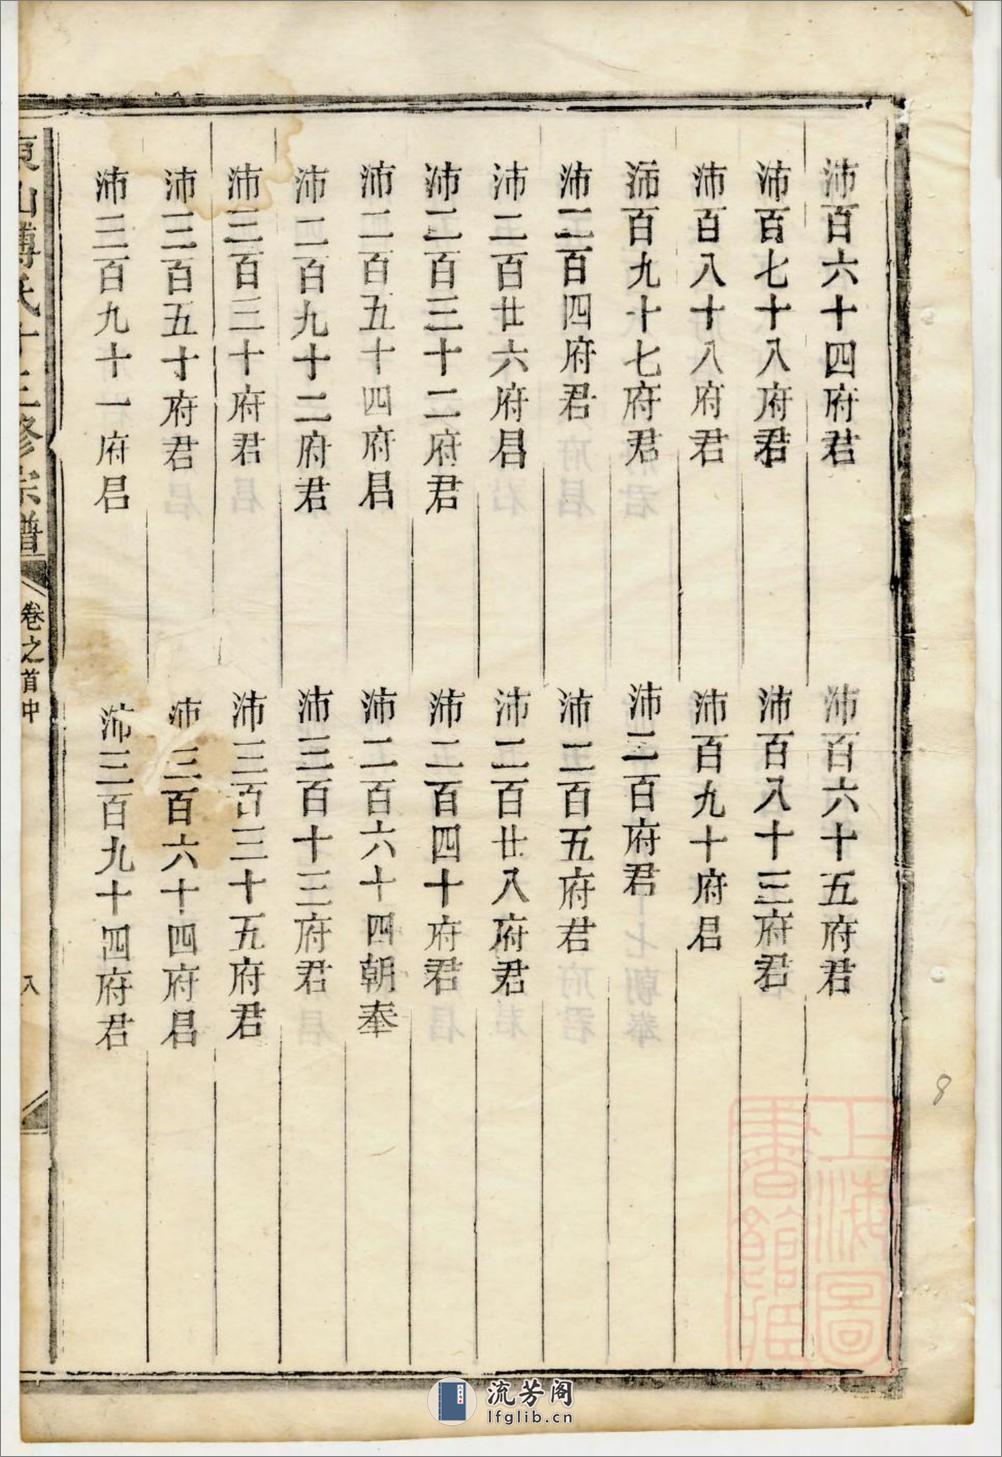 沛百六十四府君
沛百六十五府君
沛百七十八府君
沛百八十三府君
沛百八十八府君
沛百九十府君
沛百九十七府君
沛二百府君
沛二百四府君
沛二百五府君
沛二百廿六府君
沛二百廿八府君
沛二百三十二府君
沛二百四十府君
沛二百五十四府君
沛二百六十四朝奉
沛二百九十二府君
沛三百十三府君
沛三百三十府君
沛三百三十五府君
沛三百五十府君
沛三百六十四府君
沛三百九十一府君
沛三百九十四府君
東山傅氏十三修宗譜
卷之首中
八
上海圖書館藏
8
流芳阁
lfglib.cn